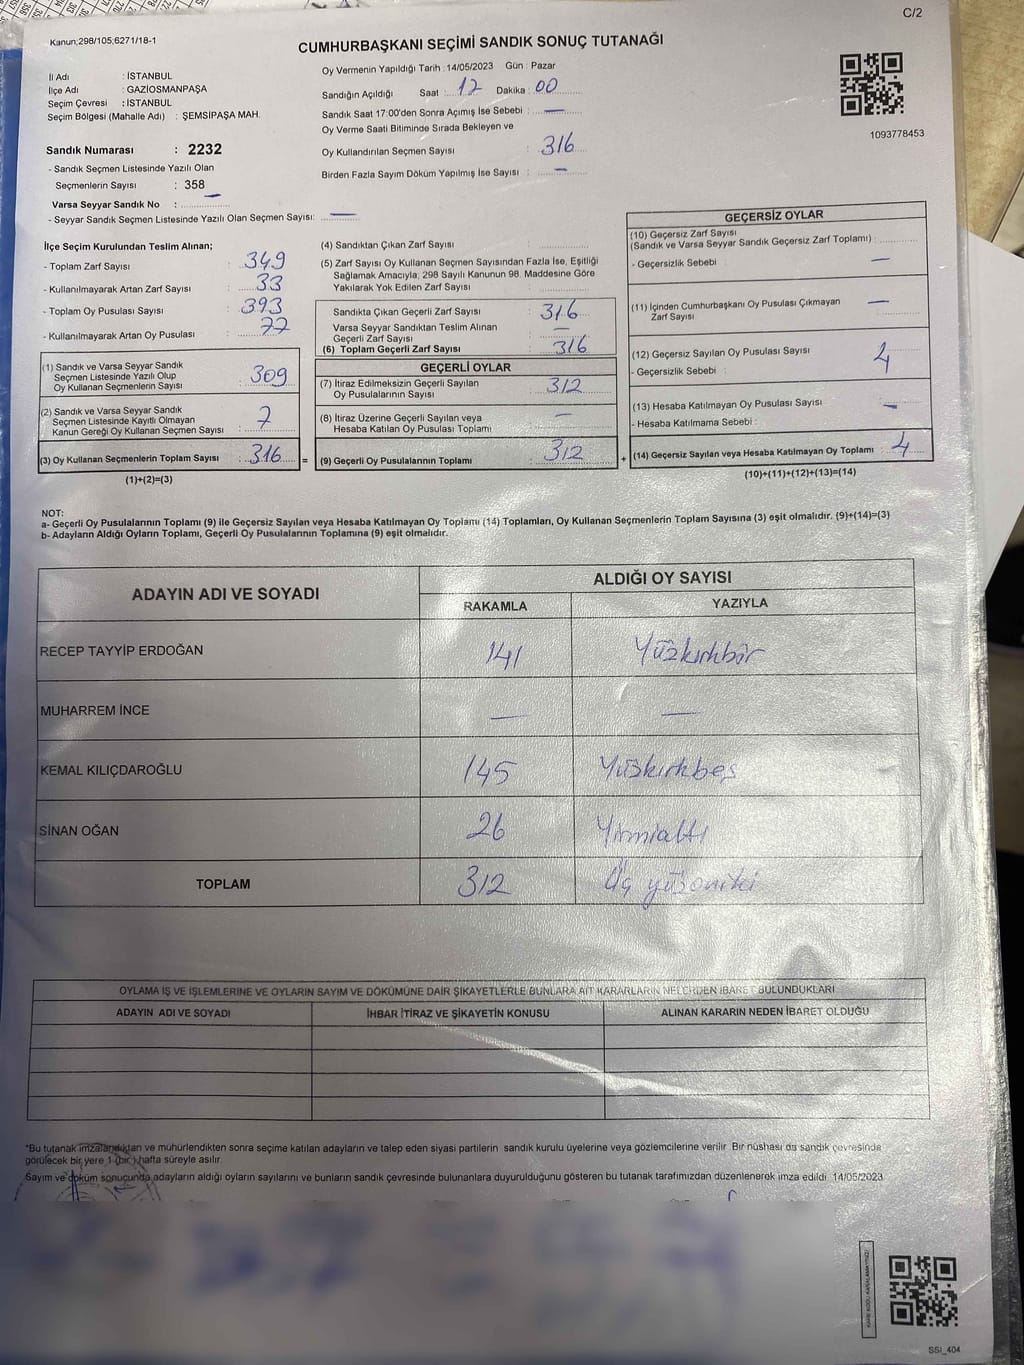 C/2
Kanun;298/105;6271/18-1
CUMHURBAŞKANI SEÇİMİ SANDIK SONUÇ TUTANAĞI
İl Adı : İSTANBUL
İlçe Adı : GAZİOSMANPAŞA
Seçim Çevresi : İSTANBUL
Seçim Bölgesi (Mahalle Adı) : ŞEMSİPAŞA MAH.
Sandık Numarası : 2232
- Sandık Seçmen Listesinde Yazılı Olan
Seçmenlerin Sayısı : 358
Varsa Seyyar Sandık No : —
- Seyyar Sandık Seçmen Listesinde Yazılı Olan Seçmen Sayısı: —
Oy Vermenin Yapıldığı Tarih : 14/05/2023 Gün : Pazar
Sandığın Açıldığı Saat : 17 Dakika : 00
Sandık Saat 17:00'den Sonra Açımış İse Sebebi : —
Oy Verme Saati Bitiminde Sırada Bekleyen ve
Oy Kullandırılan Seçmen Sayısı : 316
Birden Fazla Sayım Döküm Yapılmış İse Sayısı : —
1093778453
İlçe Seçim Kurulundan Teslim Alınan;
- Toplam Zarf Sayısı : 349
- Kullanılmayarak Artan Zarf Sayısı : 33
- Toplam Oy Pusulası Sayısı : 393
- Kullanılmayarak Artan Oy Pusulası : 77
(1) Sandık ve Varsa Seyyar Sandık
Seçmen Listesinde Yazılı Olup
Oy Kullanan Seçmenlerin Sayısı : 309
(2) Sandık ve Varsa Seyyar Sandık
Seçmen Listesinde Kayıtlı Olmayan
Kanun Gereği Oy Kullanan Seçmen Sayısı : 7
(3) Oy Kullanan Seçmenlerin Toplam Sayısı : 316
(1)+(2)=(3)
=
(4) Sandıktan Çıkan Zarf Sayısı :
(5) Zarf Sayısı Oy Kullanan Seçmen Sayısından Fazla İse, Eşitliği
Sağlamak Amacıyla, 298 Sayılı Kanunun 98. Maddesine Göre
Yakılarak Yok Edilen Zarf Sayısı :
Sandıkta Çıkan Geçerli Zarf Sayısı : 316
Varsa Seyyar Sandıktan Teslim Alınan
Geçerli Zarf Sayısı : —
(6) Toplam Geçerli Zarf Sayısı : 316
GEÇERLİ OYLAR
(7) İtiraz Edilmeksizin Geçerli Sayılan
Oy Pusulalarının Sayısı : 312
(8) İtiraz Üzerine Geçerli Sayılan veya
Hesaba Katılan Oy Pusulası Toplamı : —
(9) Geçerli Oy Pusulalarının Toplamı : 312
+
GEÇERSİZ OYLAR
(10) Geçersiz Zarf Sayısı
(Sandık ve Varsa Seyyar Sandık Geçersiz Zarf Toplamı) :
- Geçersizlik Sebebi : —
(11) İçinden Cumhurbaşkanı Oy Pusulası Çıkmayan
Zarf Sayısı : —
(12) Geçersiz Sayılan Oy Pusulası Sayısı : 4
- Geçersizlik Sebebi :
(13) Hesaba Katılmayan Oy Pusulası Sayısı : —
- Hesaba Katılmama Sebebi :
(14) Geçersiz Sayılan veya Hesaba Katılmayan Oy Toplamı : 4
(10)+(11)+(12)+(13)=(14)
NOT:
a- Geçerli Oy Pusulalarının Toplamı (9) ile Geçersiz Sayılan veya Hesaba Katılmayan Oy Toplamı (14) Toplamları, Oy Kullanan Seçmenlerin Toplam Sayısına (3) eşit olmalıdır. (9)+(14)=(3)
b- Adayların Aldığı Oyların Toplamı, Geçerli Oy Pusulalarının Toplamına (9) eşit olmalıdır.
ADAYIN ADI VE SOYADI
ALDIĞI OY SAYISI
RAKAMLA YAZIYLA
RECEP TAYYİP ERDOĞAN 141 Yüzkırkbir
MUHARREM İNCE — —
KEMAL KILIÇDAROĞLU 145 Yüzkırkbeş
SİNAN OĞAN 26 Yirmialtı
TOPLAM 312 Üç yüzoniki
OYLAMA İŞ VE İŞLEMLERİNE VE OYLARIN SAYIM VE DÖKÜMÜNE DAİR ŞİKAYETLERLE BUNLARA AİT KARARLARIN NELERDEN İBARET BULUNDUKLARI
ADAYIN ADI VE SOYADI İHBAR İTİRAZ VE ŞİKAYETİN KONUSU ALINAN KARARIN NEDEN İBARET OLDUĞU
*Bu tutanak imzalandıktan ve mühürlendikten sonra seçime katılan adayların ve talep eden siyasi partilerin sandık kurulu üyelerine veya gözlemcilerine verilir. Bir nüshası da sandık çevresinde
görülecek bir yere 1 (bir) hafta süreyle asılır.
Sayım ve döküm sonucunda adayların aldığı oyların sayılarını ve bunların sandık çevresinde bulunanlara duyurulduğunu gösteren bu tutanak tarafımızdan düzenlenerek imza edildi. 14/05/2023
SSİ_404